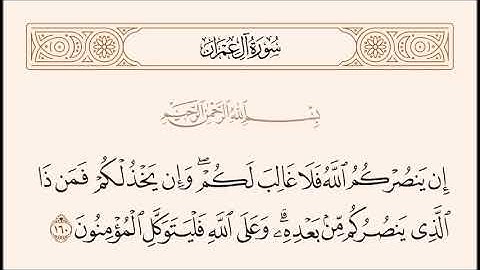 سُورَةُ آلِ عِمْرَانَ
بِسْمِ اللَّهِ الرَّحْمَٰنِ الرَّحِيمِ
إِن يَنصُرْكُمُ اللَّهُ فَلَا غَالِبَ لَكُمْ ۖ وَإِن يَخْذُلْكُمْ فَمَن ذَا
الَّذِي يَنصُرُكُم مِّنۢ بَعْدِهِ ۗ وَعَلَى اللَّهِ فَلْيَتَوَكَّلِ الْمُؤْمِنُونَ ١٦٠